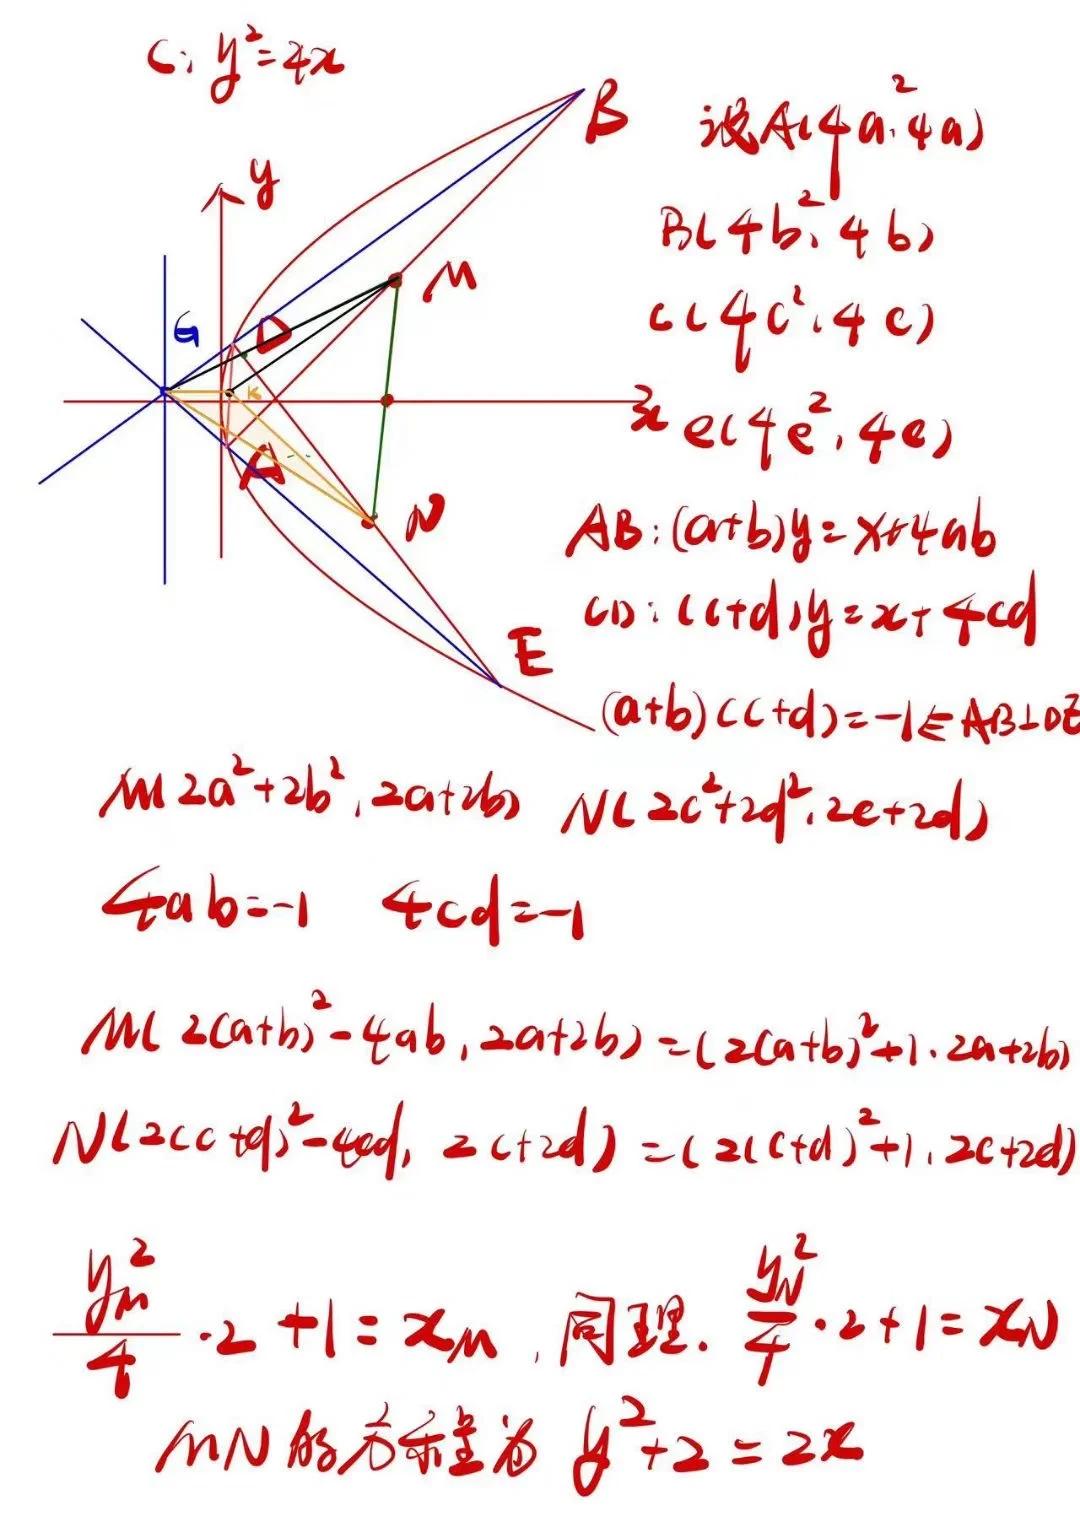 C: y²=4x
B
y
M
G
D
K
x
A
N
E
设A(4a²,4a)
B(4b²,4b)
C(4c²,4c)
e(4e²,4e)
AB:(a+b)y=x+4ab
CD:(c+d)y=x+4cd
(a+b)(c+d)=-1⇐AB⊥DE
M(2a²+2b²,2a+2b) N(2c²+2d²,2c+2d)
4ab=-1 4cd=-1
M(2(a+b)²-4ab,2a+2b)=(2(a+b)²+1,2a+2b)
N(2(c+d)²-4cd,2c+2d)=(2(c+d)²+1,2c+2d)
y_M²/4·2+1=x_M,同理.y_N²/4·2+1=x_N
MN的方程为 y²+2=2x